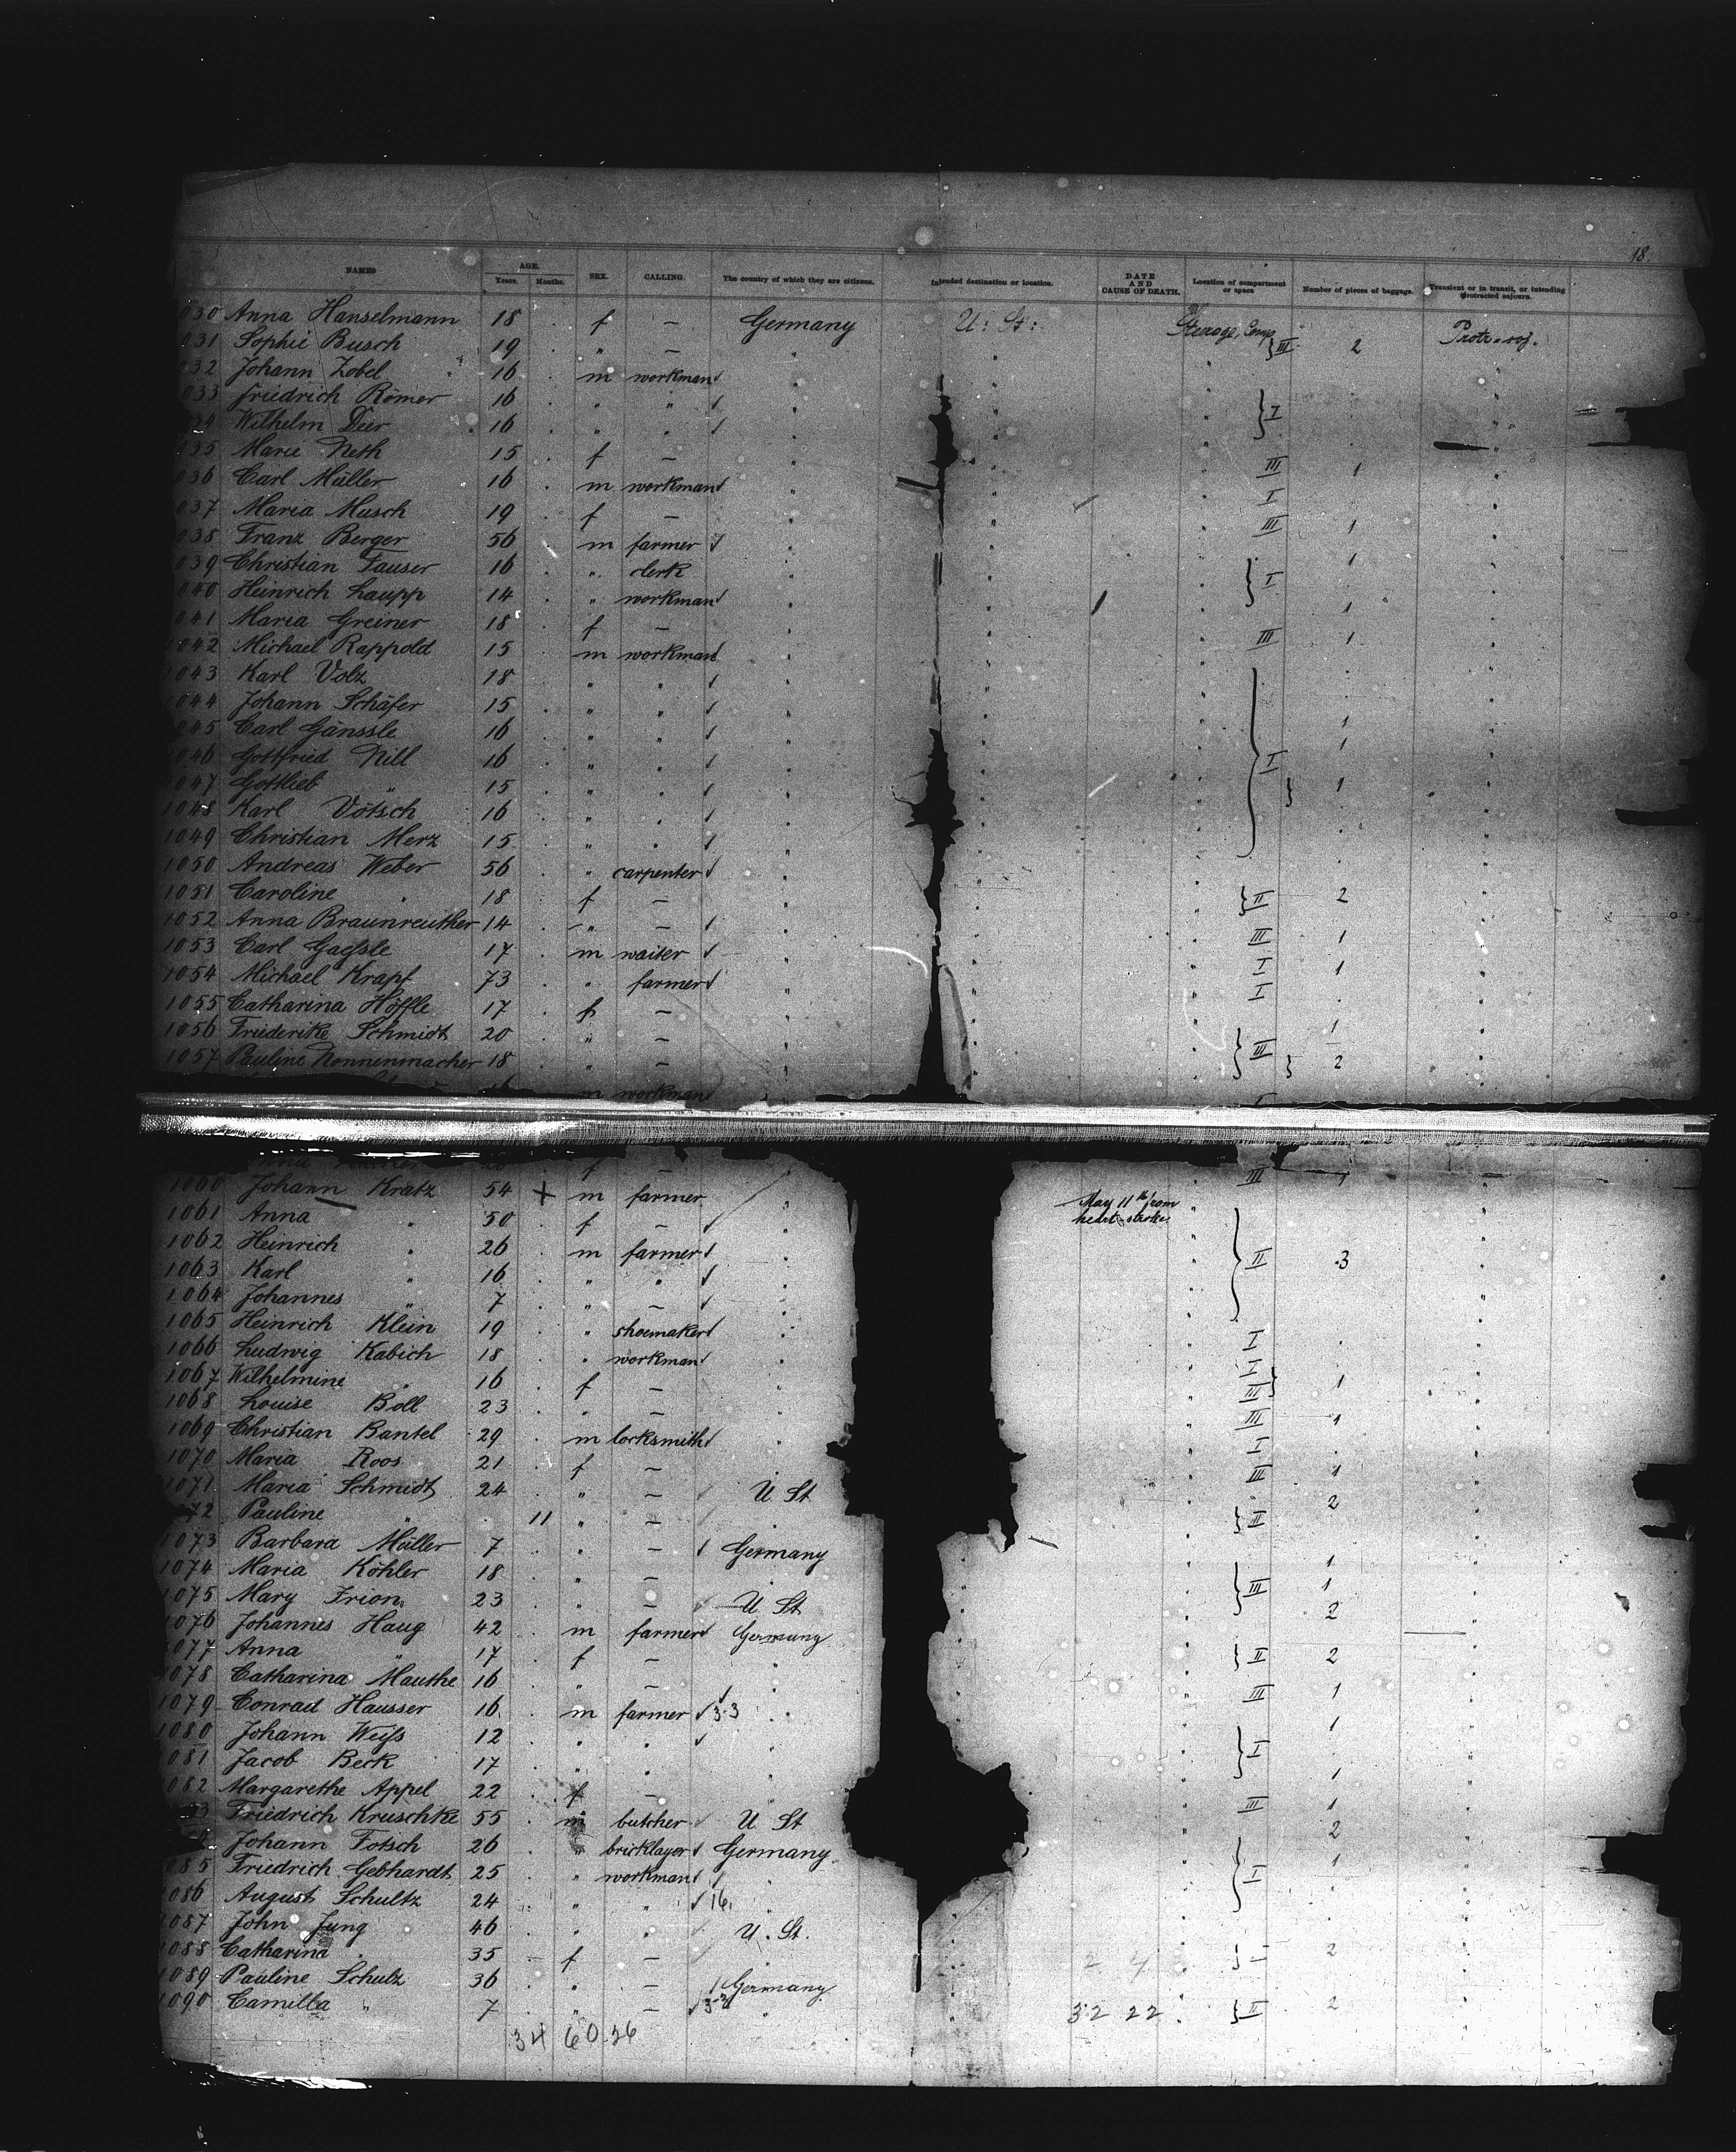 18.
NAMES AGE. Years. Months. SEX. CALLING. The country of which they are citizens. Intended destination or location. DATE AND CAUSE OF DEATH. Location of compartment or space Number of pieces of baggage. Transient or in transit, or intending protracted sojourn.
030 Anna Hanselmann 18 . f — Germany U. St. Steerage, Comp
031 Sophie Busch 19 . " — " " } III 2 Protr. soj.
032 Johann Zobel 16 . m workman " " "
033 Friedrich Römer 16 . " " " " } I "
34 Wilhelm Deer 16 . " " " " "
035 Marie Neth 15 . f — " " III 1 "
036 Carl Müller 16 . m workman " " I "
037 Maria Musch 19 . f — " " III 1 "
038 Franz Berger 56 . m farmer " " 1 "
039 Christian Fauser 16 . " clerk " " } I "
040 Heinrich Laupp 14 . " workman " " 1 "
041 Maria Greiner 18 . f — " " III 1 "
1042 Michael Rappold 15 . m workman " " "
1043 Karl Volz 18 . " " " " "
1044 Johann Schäfer 15 . " " " " 1 "
045 Carl Gänssle 16 . " " " " 1 "
1046 Gottfried Nill 16 . " " " " } I "
1047 Gottlieb " 15 . " " " " } 1 "
1048 Karl Vötsch 16 . " " " " "
1049 Christian Merz 15 . " " " " "
1050 Andreas Weber 56 . " carpenter " " "
1051 Caroline " 18 . f — " " } II 2 "
1052 Anna Braunreuther 14 . " — " " III 1 "
1053 Carl Gaessle 17 . m waiter " " I 1 "
1054 Michael Krapf 73 . " farmer " " I "
1055 Catharina Höffle 17 . f — " " 1 "
1056 Friederike Schmidt 20 . " — " " } III "
1057 Pauline Nonnenmacher 18 . " — " " } 2 "
16 m workman
f — III 1
1060 Johann Kratz 54 + m farmer " May 11th from heart-stroke
1061 Anna " 50 . f — " "
1062 Heinrich " 26 . m farmer " } II 3 "
1063 Karl " 16 . " " " "
1064 Johannes " 7 . " — " "
1065 Heinrich Klein 19 . " shoemaker " I "
1066 Ludwig Kabich 18 . " workman " I "
1067 Wilhelmine " 16 . f — " III } 1 "
1068 Louise Boll 23 . " — " III 1 "
1069 Christian Bantel 29 . m locksmith " I "
1070 Maria Roos 21 . f — " III 1 "
1071 Maria Schmidt 24 . " — U St 2 "
72 Pauline " 11 " — " } II "
1073 Barbara Müller 7 . " — Germany 1 "
1074 Maria Köhler 18 . " — " } III 1 "
1075 Mary Frion 23 . " — U St 2 "
1076 Johannes Haug 42 . m farmer Germany "
1077 Anna " 17 . f — " } II 2 "
1078 Catharina Mauthe 16 . " — " III 1 "
1079 Conrad Hausser 16 . m farmer 3-3 " 1 "
1080 Johann Weiss 12 . " " " } I "
081 Jacob Beck 17 . " " " 1 "
082 Margarethe Appel 22 . f — " III 1 "
3 Friedrich Kruschke 55 . m butcher U St 2 "
Johann Totsch 26 . " bricklayer Germany 1 "
085 Friedrich Gebhardt 25 . " workman " } I "
086 August Schultz 24 . " " 16. "
1087 John Jung 46 . " " U. St. "
1088 Catharina " 35 — f — 2 4 } I 2 "
1089 Pauline Schulz 36 . " — Germany "
1090 Camilla " 7 . " — 3-3 " 32 22 } II 2 "
34 60 26